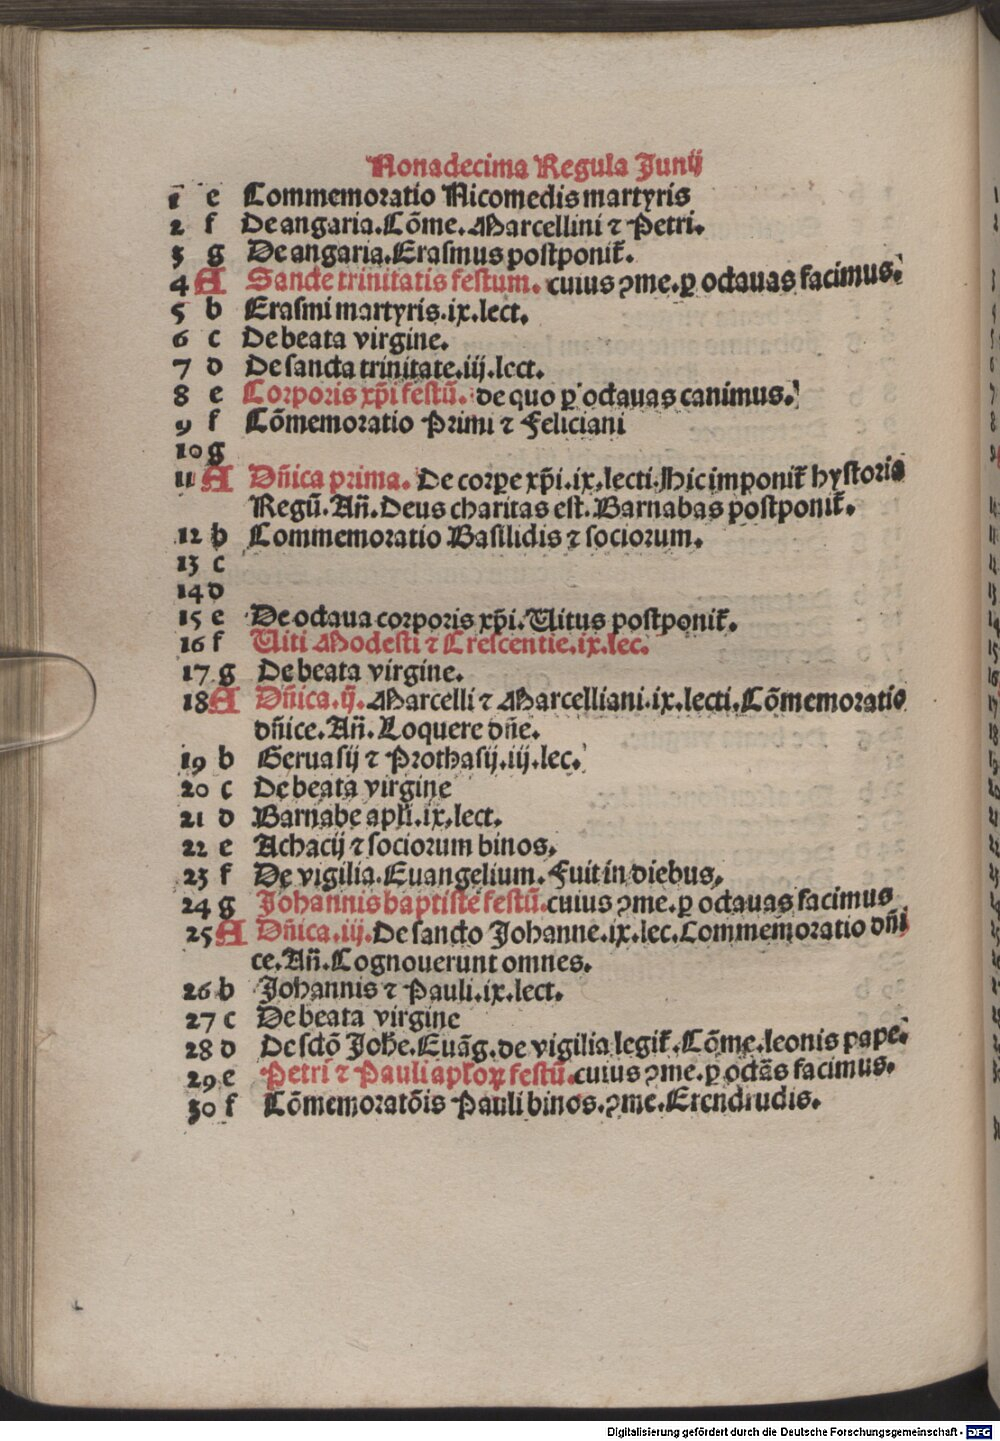 Nonadecima Regula Junij
1 e Commemoratio Nicomedis martyris
2 f De angaria. Cõme. Marcellini ⁊ Petri.
3 g De angaria. Erasmus postponit̃.
4 A Sancte trinitatis festum. cuius ꝯme. ꝑ octauas facimus.
5 b Erasmi martyris. ix. lect.
6 c De beata virgine.
7 d De sancta trinitate. iij. lect.
8 e Corporis xp̃i festũ. de quo ꝑ octauas canimus.
9 f Cõmemoratio Primi ⁊ Feliciani
10 g
11 A Dñica prima. De corꝑe xp̃i. ix. lecti. Hic imponit̃ hystoria
Regũ. Añ. Deus charitas est. Barnabas postponit̃.
12 b Commemoratio Basilidis ⁊ sociorum.
13 c
14 d
15 e De octaua corporis xp̃i. Uitus postponit̃.
16 f Uiti Modesti ⁊ Crescentie. ix. lec.
17 g De beata virgine.
18 A Dñica. ij. Marcelli ⁊ Marcelliani. ix. lecti. Cõmemoratio
dñice. Añ. Loquere dñe.
19 b Geruasij ⁊ Prothasij. iij. lec.
20 c De beata virgine
21 d Barnabe apl̃i. ix. lect.
22 e Achacij ⁊ sociorum binos.
23 f De vigilia. Euangelium. Fuit in diebus.
24 g Johannis baptiste festũ. cuius ꝯme. ꝑ octauas facimus
25 A Dñica. iij. De sancto Johanne. ix. lec. Commemoratio dñi
ce. Añ. Cognouerunt omnes.
26 b Johannis ⁊ Pauli. ix. lect.
27 c De beata virgine
28 d De sctõ Joh̃e. Euãg. de vigilia legit̃. Cõme. leonis pape.
29 e Petri ⁊ Pauli apl̃oꝝ festũ. cuius ꝯme. ꝑ octãs facimus.
30 f Cõmemoratõis Pauli binos. ꝯme. Erendrudis.
Digitalisierung gefördert durch die Deutsche Forschungsgemeinschaft - DFG